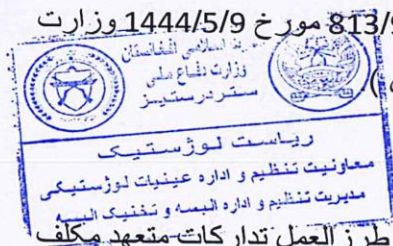 813/9 مورخ 1444/5/9 وزارت
د افغانستان اسلامی
وزارت دفاع ملی
ستر درستیز
ریاست لوژستیک
معاونیت تنظیم و اداره عینیات لوژستیکی
مدیریت تنظیم و اداره البسه و تخنیک البسه
طرز العمل تدارکات متعهد مکلف